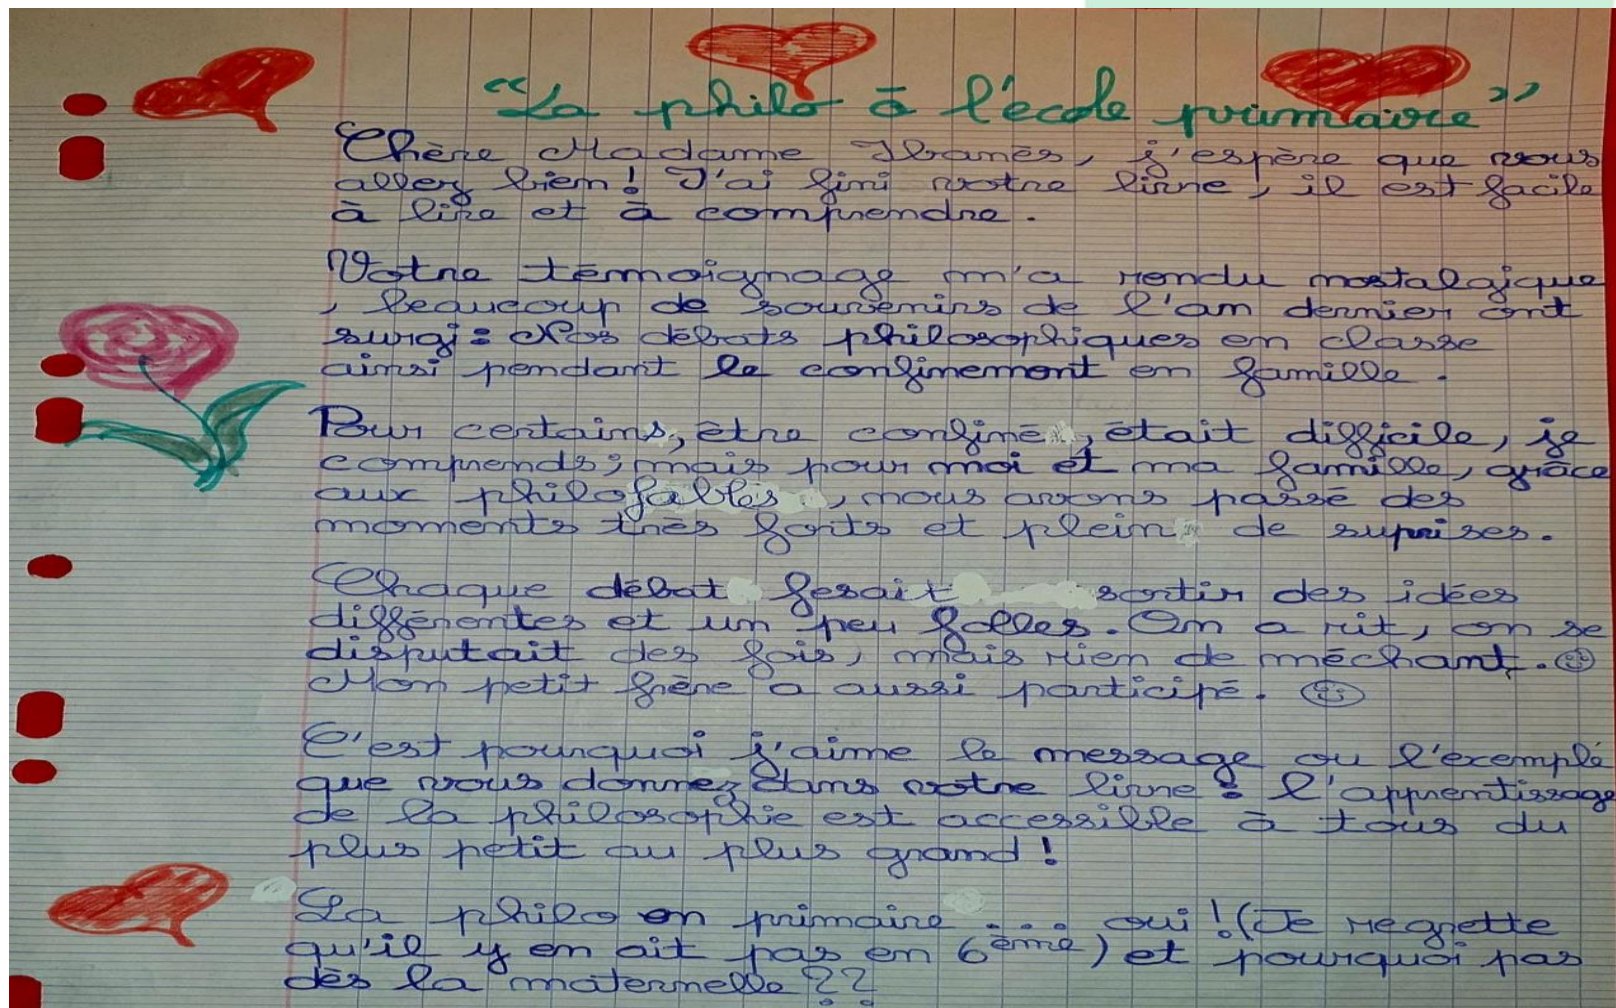 “La philo à l'école primaire”
Chère Madame Ibanès, j'espère que vous
allez bien! J'ai fini votre livre, il est facile
à lire et à comprendre.
Votre témoignage m'a rendu nostalgique
, beaucoup de souvenirs de l'an dernier ont
surgi: Nos débats philosophiques en classe
ainsi pendant le confinement en famille.
Pour certains, être confiné, était difficile, je
comprends; mais pour moi et ma famille, grâce
aux philofables, nous avons passé des
moments très forts et plein de suprises.
Chaque débat fesait sortir des idées
différentes et un peu folles. On a rit, on se
disputait des fois, mais rien de méchant. ☺
Mon petit frère a aussi participé. ☺
C'est pourquoi j'aime le message ou l'exemple
que vous donnez dans votre livre: l'apprentissage
de la philosophie est accessible à tous du
plus petit au plus grand!
La philo en primaire ... oui! (Je regrette
qu'il y en ait pas en 6ème) et pourquoi pas
dès la maternelle??